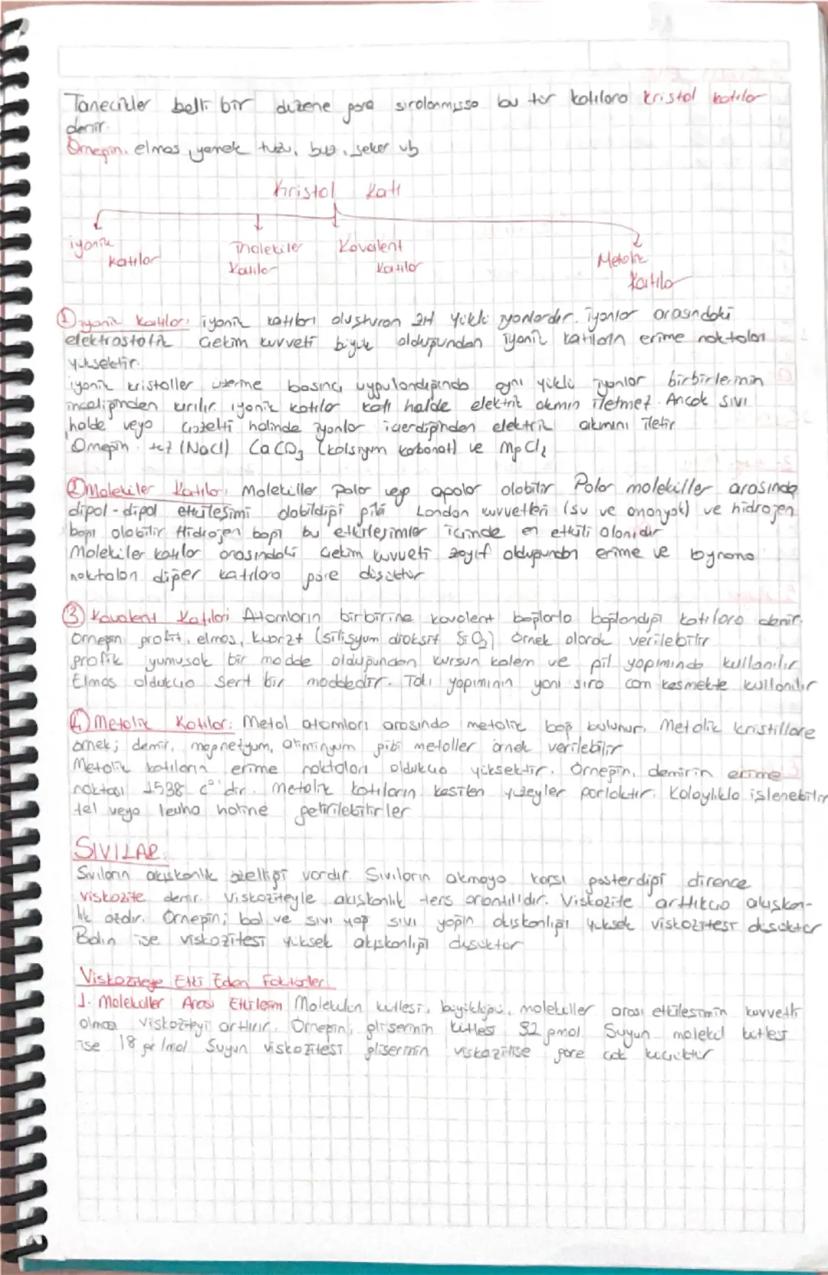 Tanecikler belli bir düzene göre sıralanmışsa bu tür katılara kristal katılar
denir.
Örneğin, elmas, yemek tuzu, buz, şeker vb
Kristal Katı
iyonik katılar
Moleküler katılar
Kovalent katılar
Metalik katılar
① iyonik katılar: iyonik katıları oluşturan zıt yüklü iyonlardır. iyonlar arasındaki
elektrostatik çekim kuvveti büyük olduğundan iyonik katıların erime noktaları
yüksektir.
iyonik kristaller üzerine basınç uygulandığında aynı yüklü iyonlar birbirlerinin
inceliğinden kırılır. iyonik katılar katı halde elektrik akımını iletmez. Ancak sıvı
halde veya çözelti halinde iyonlar içerdiğinden elektrik akımını iletir
Örneğin (NaCl) CaCO₃ (kalsiyum karbonat) ve MgCl₂
② Moleküler Katılar: Moleküller polar veya apolar olabilir Polar moleküller arasında
dipol-dipol etkileşimi olabildiği gibi London kuvvetleri (su ve amonyak) ve hidrojen
bağı olabilir Hidrojen bağı bu etkileşimler içinde en etkili olanıdır
Moleküler katılar arasındaki çekim kuvveti zayıf olduğundan erime ve kaynama
noktaları diğer katılara göre düşüktür
③ Kovalent Katılar: Atomların birbirine kovalent bağlarla bağlandığı katılara denir.
Örneğin grafit, elmas, kuvarzt (silisyum dioksit SiO₂) örnek olarak verilebilir
grafik yumuşak bir madde olduğundan kurşun kalem ve pil yapımında kullanılır
Elmas oldukça sert bir maddedir. Takı yapımının yanı sıra cam kesmekte kullanılır
④ Metalik Katılar: Metal atomları arasında metalik bağ bulunur. Metalik kristillare
örnek; demir, magnetyum, alüminyum gibi metaller örnek verilebilir
Metalik katıların erime noktaları oldukça yüksektir. Örneğin, demirin erime
noktası 1538 C° dir. Metalik katıların kesilen yüzeyler parlaktır. Kolaylıkla işlenebilir
tel veya levha haline getirilebilirler
SIVILAR
Sıvıların akışkanlık özelliği vardır. Sıvıların akmaya karşı gösterdiği dirence
viskozite denir. Viskoziteyle akışkanlık ters orantılıdır. Viskozite arttıkça akışkan-
lık azdır. Örneğin; bal ve sıvı yağ sıvı yağın akışkanlığı yüksek viskozitesi düşüktür
Balın ise viskozitesi yüksek akışkanlığı düşüktür
Viskoziteye Etki Eden Faktörler
1. Moleküller Arası Etkileşim Molekülün kütlesi, büyüklüğü, moleküller arası etkileşimin kuvvetli
olması viskoziteyi arttırır. Örneğin; gliserinin kütlesi 92 gmol. Suyun molekül kütlesi
ise 18 gr/mol Suyun viskozitesi gliserinin viskozitise göre çok küçüktür